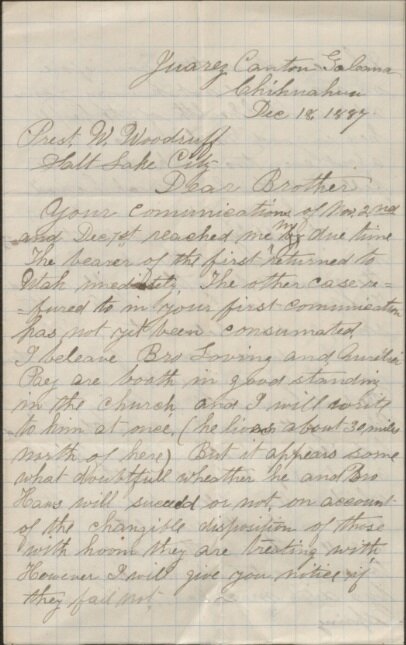 Juarez Canton Galeana
Chihuahua
Dec 18, 1887
Prest W. Woodruff
Salt Lake City
Dear Brother
Your communications of Nov, 22nd
and Dec, 1st reached me in due time
The bearer of the first returned to
Utah imediately. The other case re-
-fured to in your first communication
has not yet been consumated
I beleave Bro Loving and Aurelia
Paez are booth in good standing
in the church and I will write
to him at once, (he lives about 30 miles
north of here) But it appears some
what doubtfull wheather he and Bro
Haws will succeed or not, on account
of the changible disposition of those
with hoom they are treating with,
However I will give you notice if
they fail not.